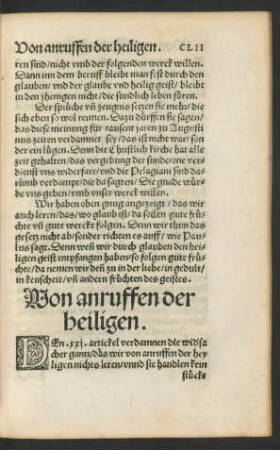 Von anruffen der heiligen. CLII
ren sind/nicht vmb der folgenden werck willen.
Dann inn dem beruff bleibt man fest durch den
glauben/vnd der glaube vnd heilig geist/bleibt
in den ihenigen nicht/die sundlich leben füren.
Der sprüche vñ zeugnis setzen sie mehr/die
sich eben so wol reimen. Dazu dürffen sie sagen/
das diese meinung für tausent jaren zu Augusti
nus zeiten verdamnet sey/das ist nicht war/son
der ein lügen. Denn die Christlich kirche hat alle
zeit gehalten/das vergebung der sünde/one ver-
dienst vns widerfare/vnd die Pelagiani sind da-
rumb verdampt/die da sagten/Die gnade würde
vns geben/vmb vnser werck willen.
Wir haben oben gnug angezeigt/das wir
auch leren/das/wo glaub ist/da sollen gute frü-
chte vñ gute wercke folgen. Denn wir thun das
gesetz nicht ab/sonder richten es auff/wie Pau-
lus sagt. Denn wenn wir durch glauben den hei-
ligen geist empfangen haben/so folgen gute frü-
chte/da nemen wir deñ zu in der liebe/in gedult/
in keuscheit/vñ andern früchten des geistes.
Von anruffen der
heiligen.
DEn .xxj. artickel verdamnen die widsa
cher gantz/das wir von anruffen der hey
ligen nichts leren/vnnd sie handlen kein
stücke